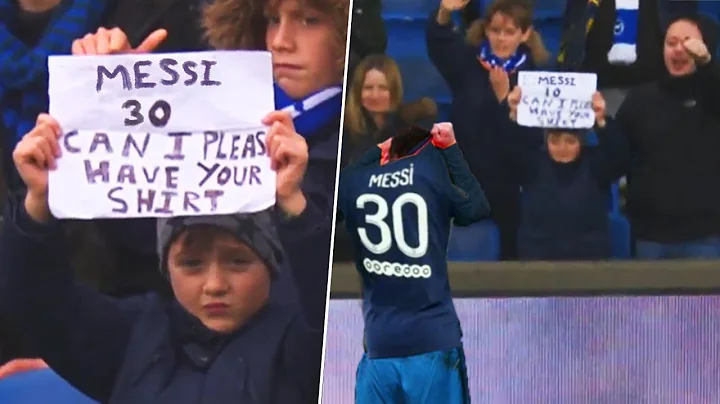 MESSI
30
CAN I PLEAS
HAVE YOUR
SHIRT
MESSI
10
CAN I PLEAS
HAVE YOUR
SHIRT
MESSI
30
ooredoo